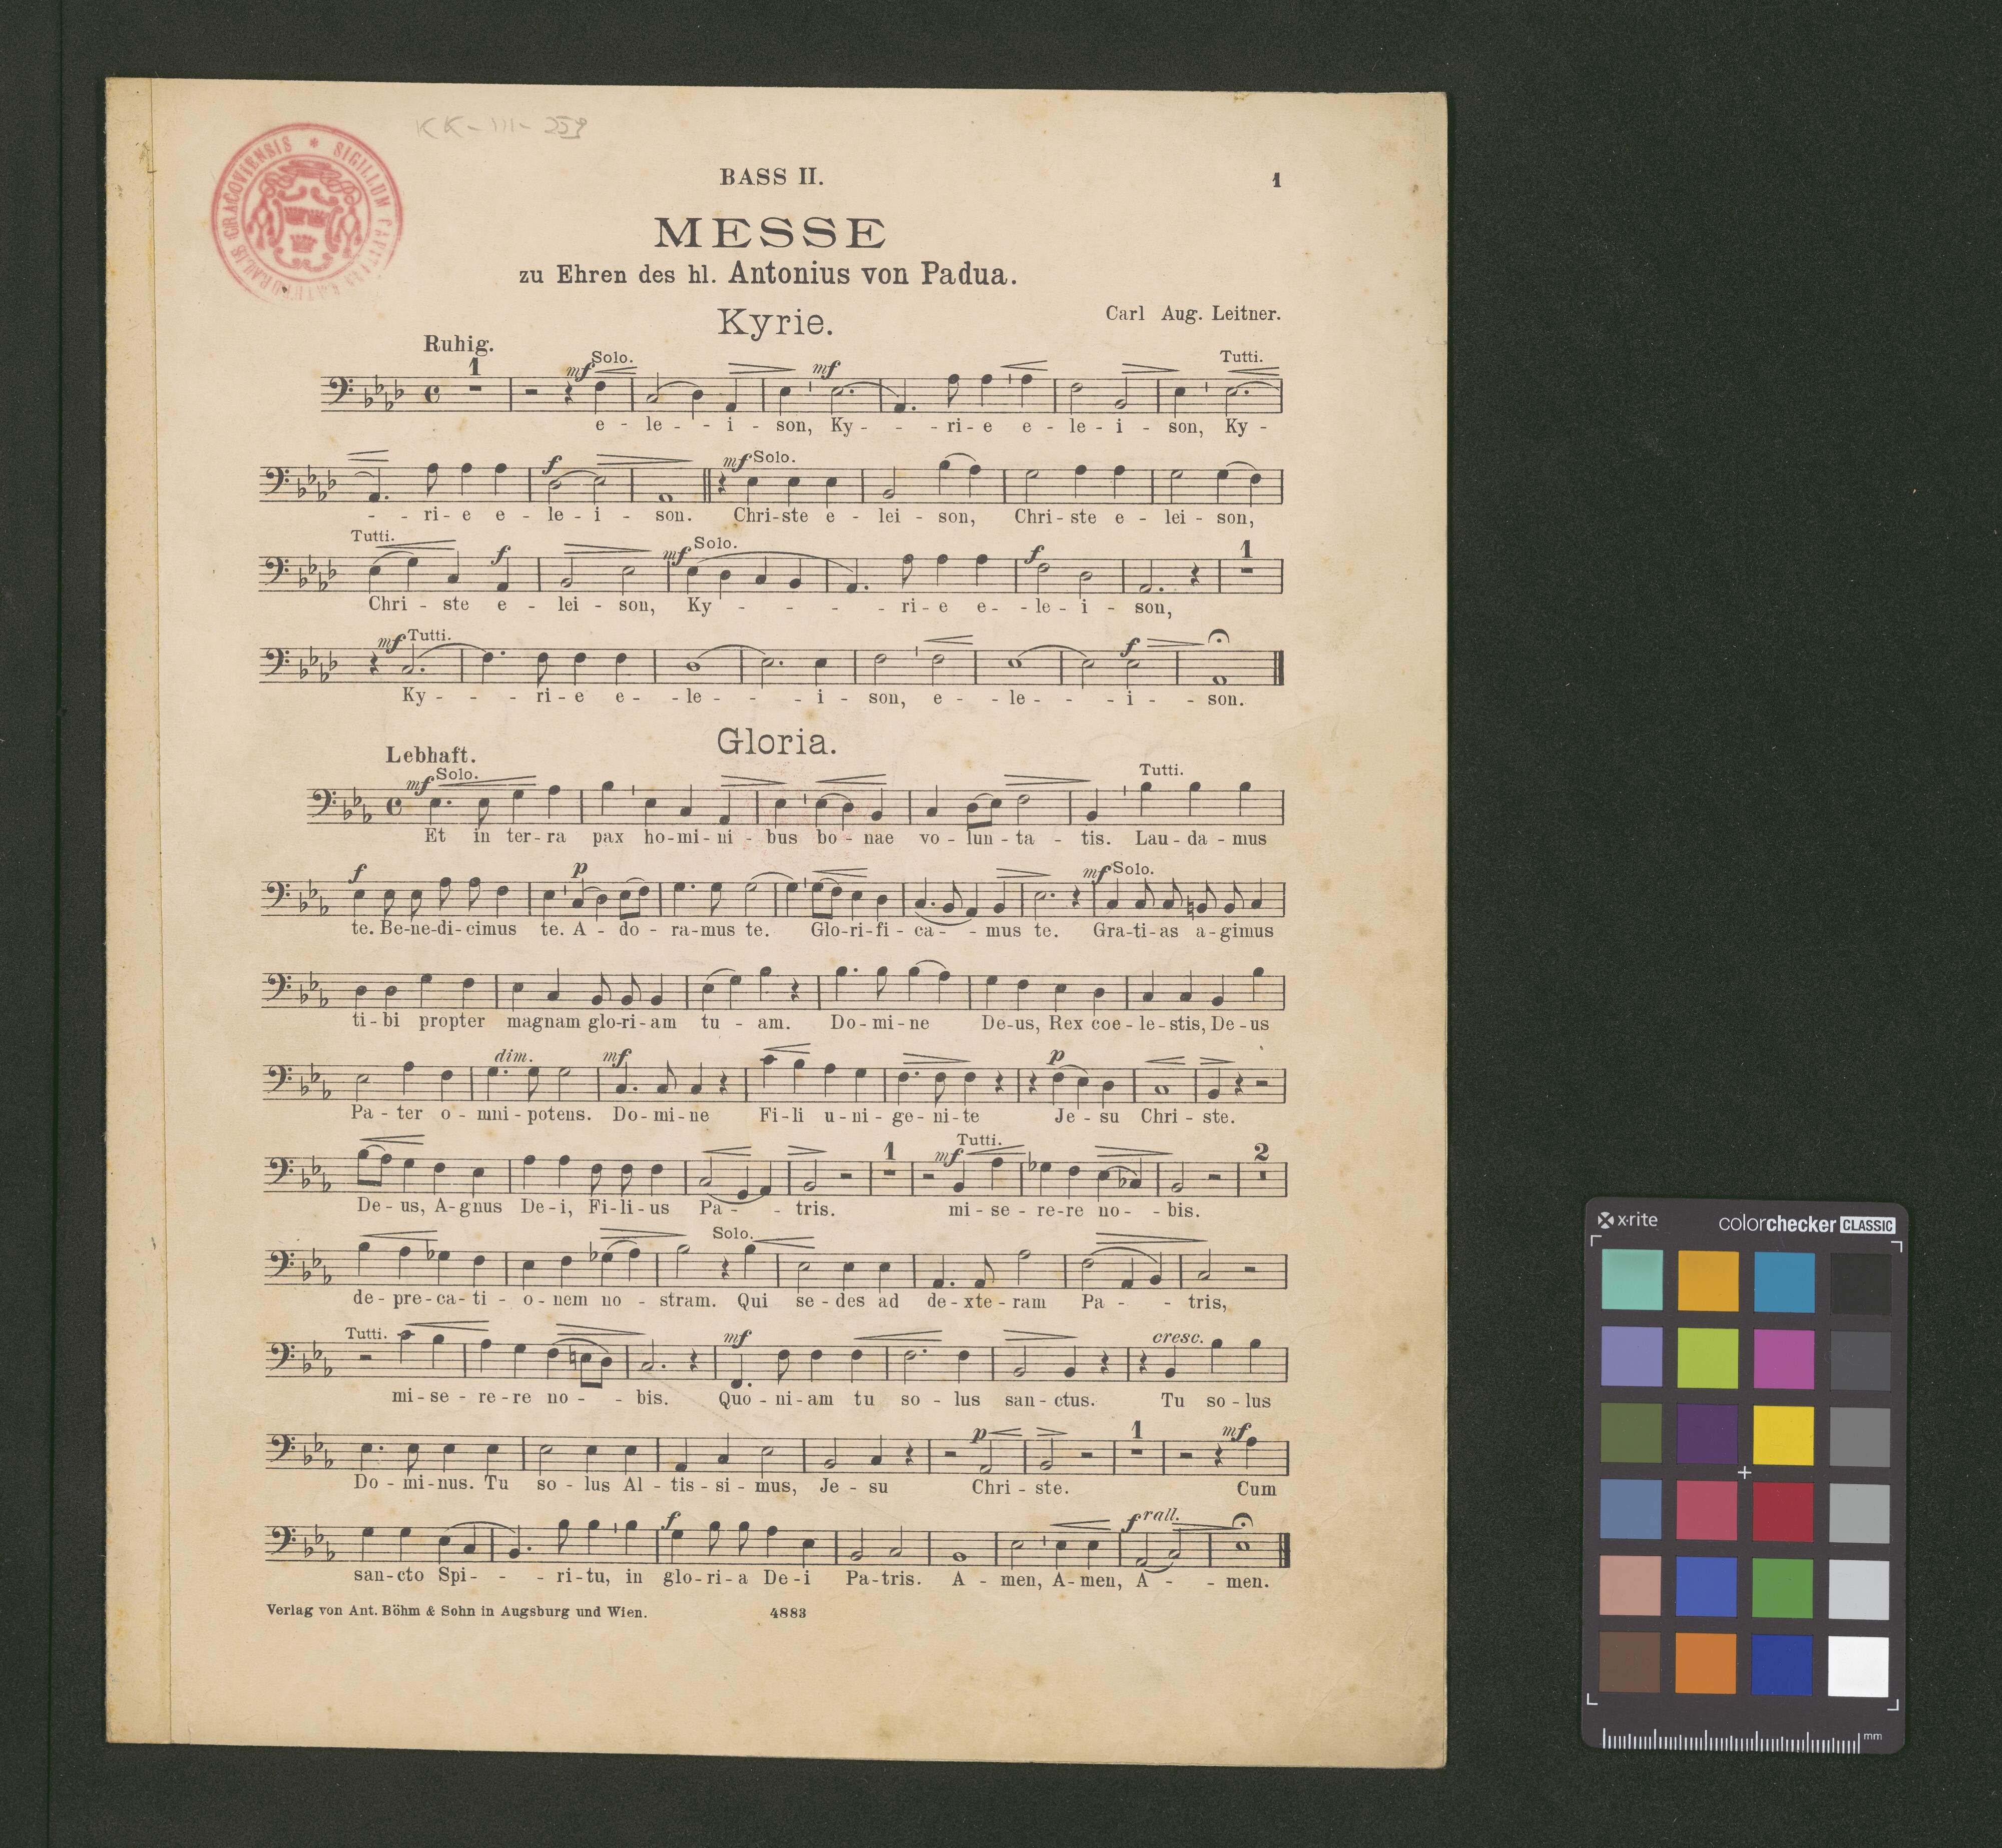 KK-III-259
SIGILLUM CAPITULI CATHEDRALIS CRACOVIENSIS *
BASS II.
1
MESSE
zu Ehren des hl. Antonius von Padua.
Kyrie.
Carl Aug. Leitner.
Ruhig.
1 mf Solo. mf Tutti.
e - le - - i - son, Ky - - - ri - e e - le - i - son, Ky -
f mf Solo.
- - ri - e e - le - i - son. Chri - ste e - lei - son, Chri - ste e - lei - son,
Tutti. f mf Solo. f 1
Chri - ste e - lei - son, Ky - - - - ri - e e - - le - i - son,
mf Tutti. f
Ky - - - ri - e e - - le - - - i - son, e - - le - - - i - - son.
Gloria.
Lebhaft.
mf Solo. Tutti.
Et in ter - ra pax ho - mi - ni - bus bo - nae vo - lun - ta - tis. Lau - da - mus
f p mf Solo.
te. Be - ne - di - cimus te. A - do - ra - mus te. Glo - ri - fi - ca - - mus te. Gra - ti - as a - gimus
ti - bi propter magnam glo - ri - am tu - am. Do - mi - ne De - us, Rex coe - le - stis, De - us
dim. mf p
Pa - ter o - mni - potens. Do - mi - ne Fi - li u - ni - ge - ni - te Je - su Chri - ste.
1 mf Tutti. 2
De - us, A - gnus De - i, Fi - li - us Pa - - tris. mi - se - re - re no - - bis.
Solo.
de - pre - ca - ti - o - nem no - stram. Qui se - des ad de - xte - ram Pa - - tris,
Tutti. mf cresc.
mi - se - re - re no - - bis. Quo - ni - am tu so - lus san - ctus. Tu so - lus
p 1 mf
Do - mi - nus. Tu so - lus Al - tis - si - mus, Je - su Chri - ste. Cum
f f rall.
san - cto Spi - - - ri - tu, in glo - ri - a De - i Pa - tris. A - men, A - men, A - - men.
Verlag von Ant. Böhm & Sohn in Augsburg und Wien. 4883
x·rite colorchecker CLASSIC
mm